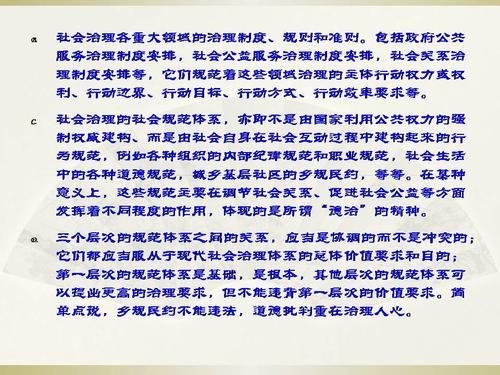 a. 社会治理各重大领域的治理制度、规则和准则。包括政府公共
服务治理制度安排，社会公益服务治理制度安排，社会关系治
理制度安排等，它们规范着这些领域治理的主体行动权力或权
利、行动边界、行动目标、行动方式、行动效率要求等。
c. 社会治理的社会规范体系，亦即不是由国家利用公共权力的强
制权威建构、而是由社会自身在社会互动过程中建构起来的行
为规范，例如各种组织的内部纪律规范和职业规范，社会生活
中的各种道德规范，城乡基层社区的乡规民约，等等。在某种
意义上，这些规范主要在调节社会关系、促进社会公益等方面
发挥着不同程度的作用，体现的是所谓“德治”的精神。
D. 三个层次的规范体系之间的关系，应当是协调的而不是冲突的；
它们都应当服从于现代社会治理体系的总体价值要求和目的；
第一层次的规范体系是基础，是根本，其他层次的规范体系可
以提出更高的治理要求，但不能违背第一层次的价值要求。简
单点说，乡规民约不能违法，道德批判重在治理人心。